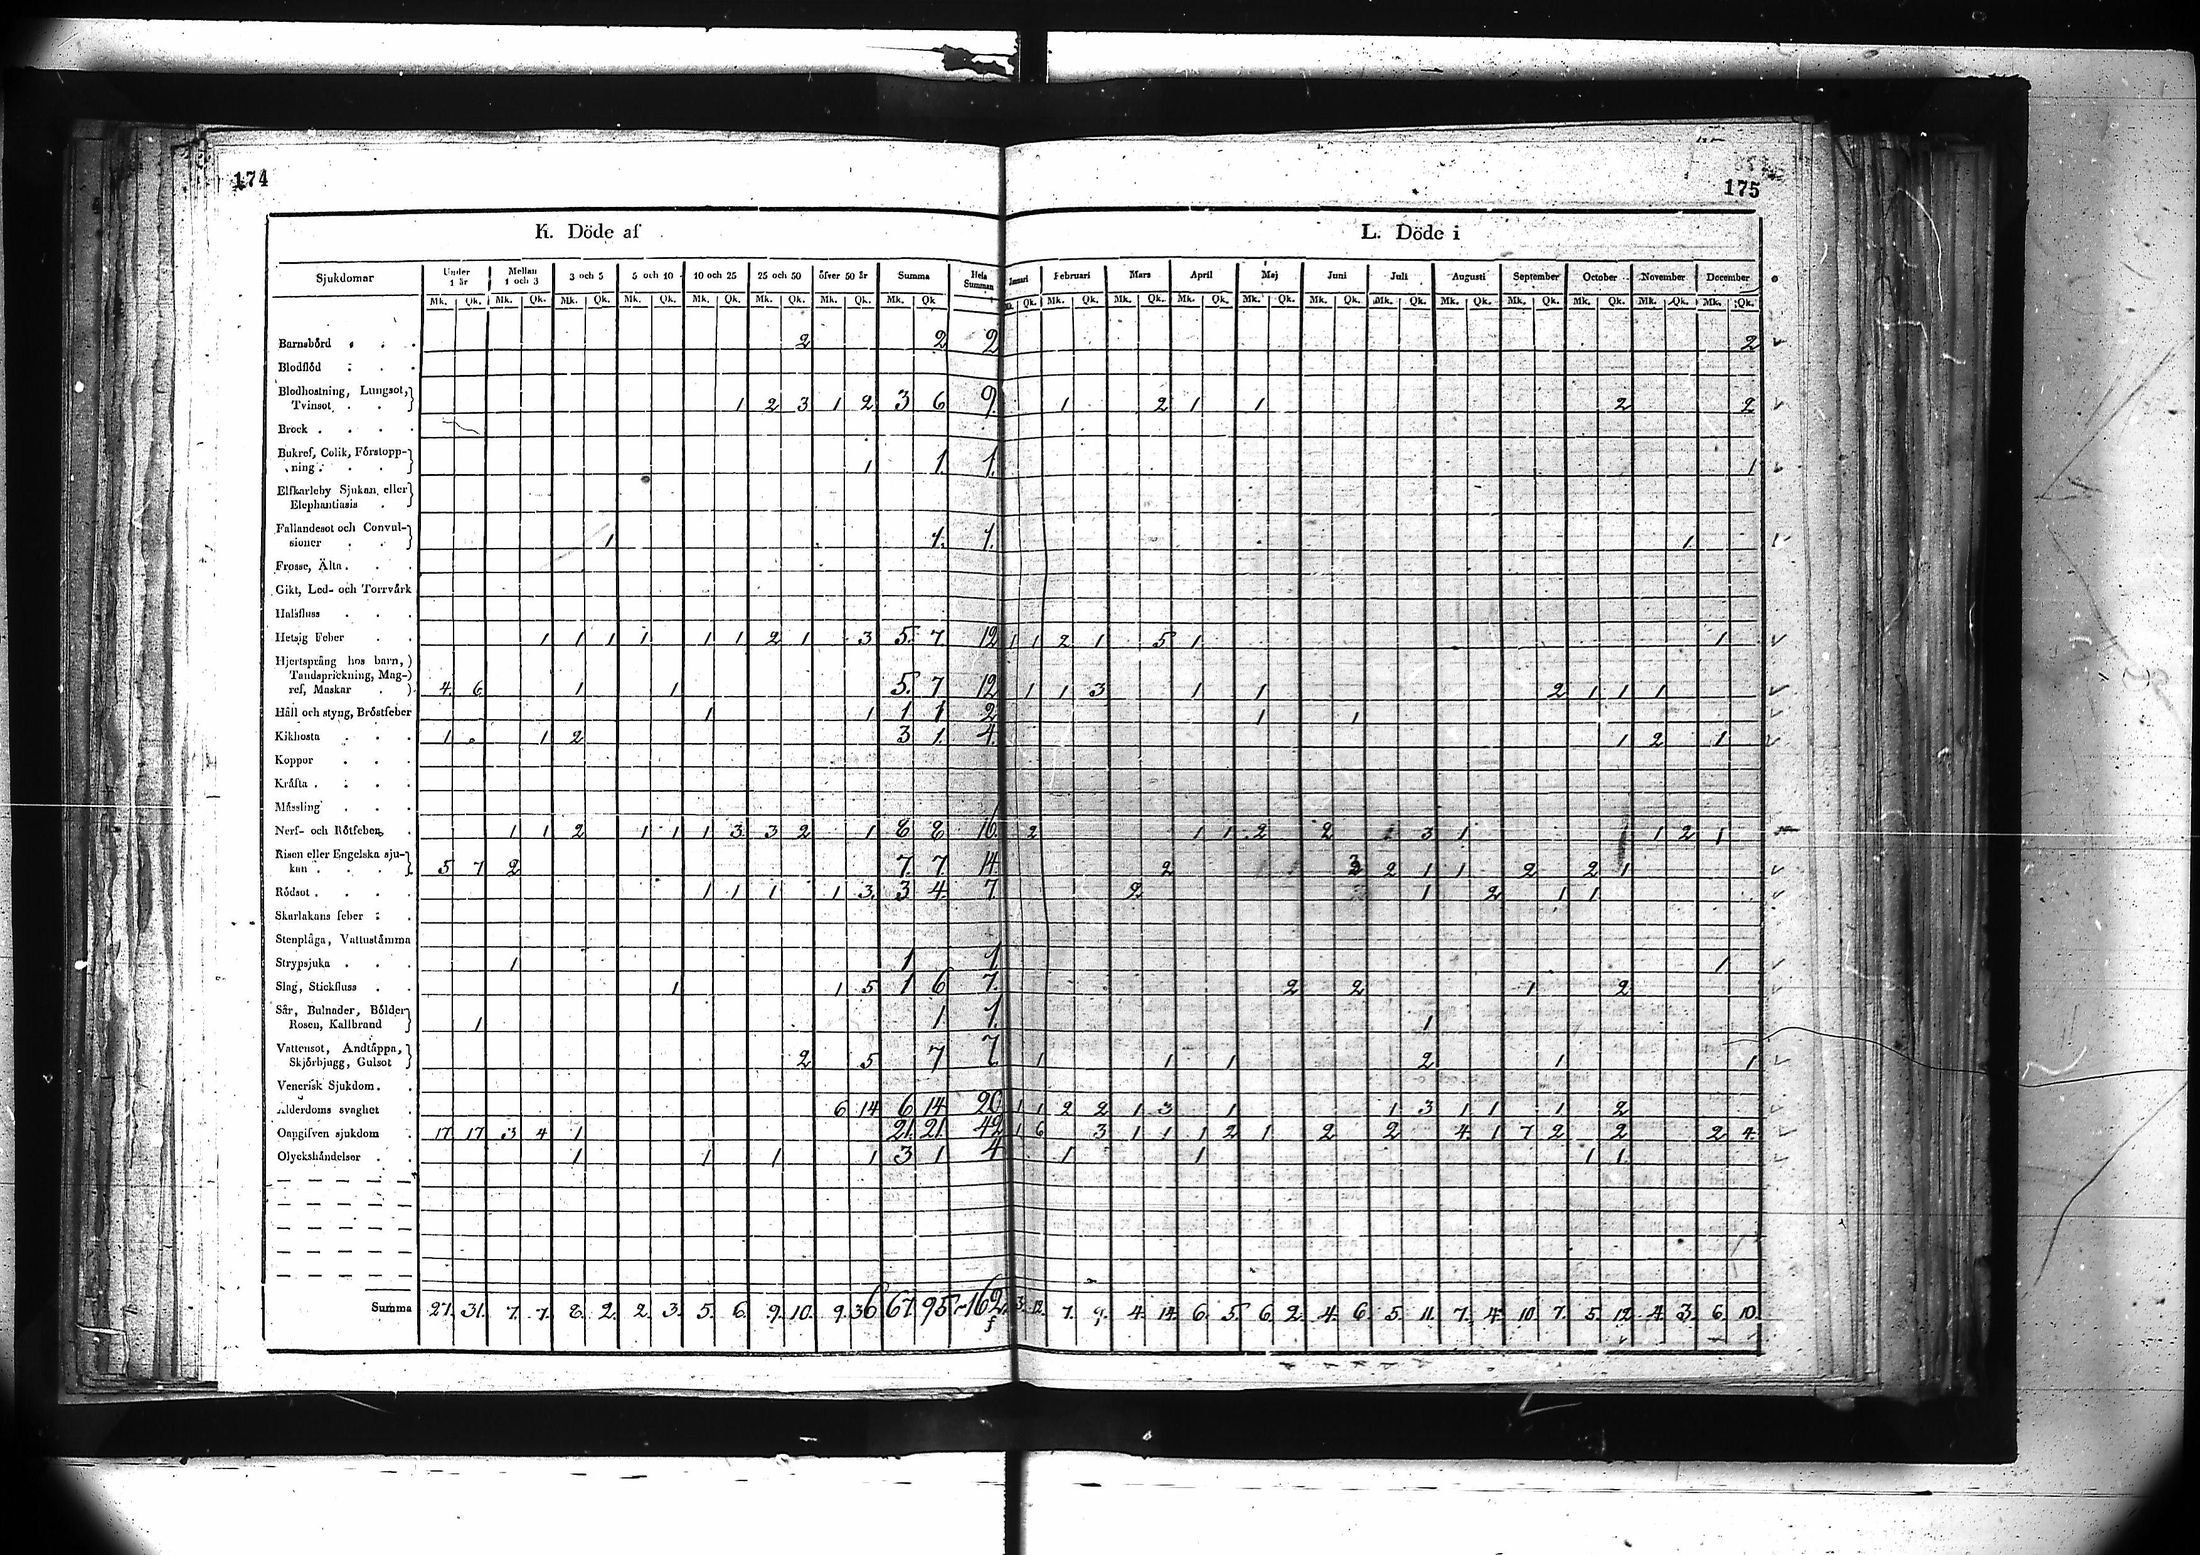 174
175
K. Döde af
L. Döde i
Sjukdomar Under 1 år Mellan 1 och 3 3 och 5 5 och 10 10 och 25 25 och 50 öfver 50 år Summa Hela Summan Januari Februari Mars April Maj Juni Juli Augusti September October November December
Mk. Qk. Mk. Qk. Mk. Qk. Mk. Qk. Mk. Qk. Mk. Qk. Mk. Qk. Mk. Qk Qk. Mk. Qk. Mk. Qk. Mk. Qk. Mk. Qk. Mk. Qk. Mk. Qk. Mk. Qk. Mk. Qk. Mk. Qk. Mk. Qk. Mk. Qk.
Barnsbörd 2 2 2 2
Blodflöd
Blodhostning, Lungsot,
Tvinsot 1 2 3 1 2 3 6 9 1 2 1 1 2 2
Brock
Bukref, Colik, Förstopp-
ning 1 1 1 1
Elfkarleby Sjukan eller
Elephantiasis
Fallandesot och Convul-
sioner 1 1. 1. 1
Frosse, Älta
Gikt, Led- och Torrvärk
Halsfluss
Hetsig Feber 1 1 1 1 1 1 2 1 3 5. 7. 12 1 1 2 1 5 1 1
Hjertsprång hos barn,
Tandsprickning, Mag-
ref, Maskar 4. 6 1 1 5. 7 12 1 1 3 1 1 2 1 1 1
Håll och styng, Bröstfeber 1 1 1 1 2 1 1
Kikhosta 1 1 2 3 1. 4. 1 2 1
Koppor
Kräfta
Mässling
Nerf- och Rötfeber 1 1 2 1 1 1 3 3 2 1 8 8 16 2 1 1 2 2 1 3 1 1 1 2 1
Risen eller Engelska sju-
kan 5 7 2 7. 7. 14. 2 3 2 1 1 2 2 1
Rödsot 1 1 1 1 3. 3 4. 7 2 1 2 1 1
Skarlakans feber
Stenplåga, Vattustämma
Strypsjuka 1 1 1 1
Slag, Stickfluss 1 1 5 1 6 7. 2 2 1 2
Sår, Bulnader, Bölder
Rosen, Kallbrand 1 1 1. 1
Vattensot, Andtäppa,
Skjörbjugg, Gulsot 2 5 7 7 1 1 1 2 1 1
Venerisk Sjukdom
Ålderdoms svaghet 6 14 6 14 20 1 1 2 2 1 3 1 1 3 1 1 1 2
Oangifven sjukdom 17 17 3 4 1 21. 21. 42 1 6 3 1 1 1 2 1 2 2 4. 1 7 2 2 2 4.
Olyckshändelser 1 1 1 1 3 1 4 1 1 1 1
Summa 27. 31. 7. 7. 8. 2. 2. 3. 5. 6. 9. 10. 9. 36 67. 95. 162 3. 12. 7. 9. 4. 14. 6. 5. 6. 2. 4. 6. 5. 11. 7. 4. 10. 7. 5. 12. 4. 3. 6. 10.